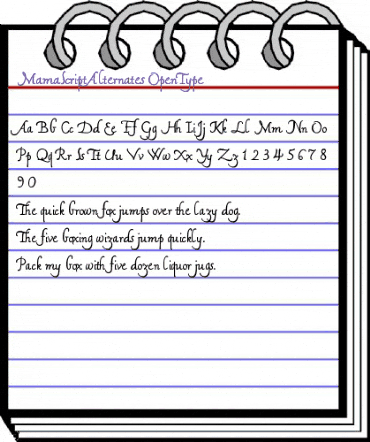 MamaScriptAlternates OpenType
Aa Bb Cc Dd Ee Ff Gg Hh Ii Jj Kk Ll Mm Nn Oo
Pp Qq Rr Ss Tt Uu Vv Ww Xx Yy Zz 1 2 3 4 5 6 7 8
9 0
The quick brown fox jumps over the lazy dog.
The five boxing wizards jump quickly.
Pack my box with five dozen liquor jugs.